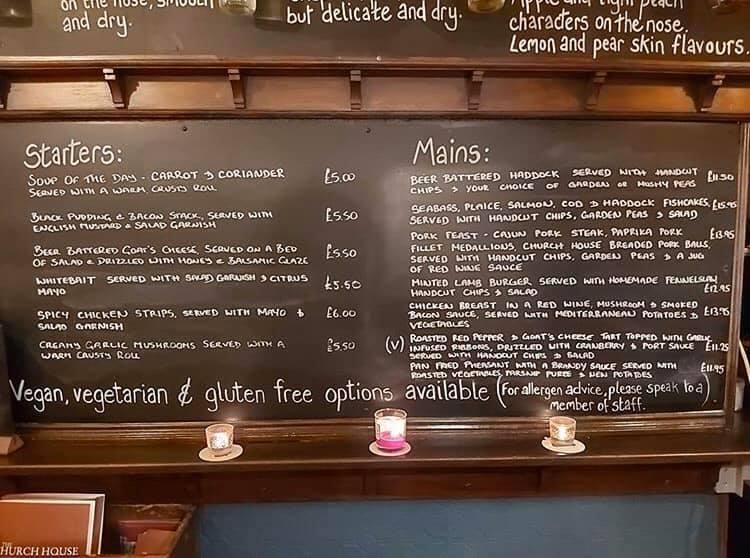 on the nose, smooth
and dry.
but delicate and dry.
Apple and light peach
characters on the nose.
Lemon and pear skin flavours.
Starters:
SOUP OF THE DAY - CARROT & CORIANDER £5.00
SERVED WITH A WARM CRUSTY ROLL
BLACK PUDDING & BACON STACK, SERVED WITH £5.50
ENGLISH MUSTARD & SALAD GARNISH
BEER BATTERED GOAT'S CHEESE, SERVED ON A BED £5.50
OF SALAD & DRIZZLED WITH HONEY & BALSAMIC GLAZE
WHITEBAIT SERVED WITH SALAD GARNISH & CITRUS £5.50
MAYO
SPICY CHICKEN STRIPS, SERVED WITH MAYO & £6.00
SALAD GARNISH
CREAMY GARLIC MUSHROOMS SERVED WITH A £5.50
WARM CRUSTY ROLL
Mains:
BEER BATTERED HADDOCK SERVED WITH HANDCUT £11.50
CHIPS & YOUR CHOICE OF GARDEN OR MUSHY PEAS
SEABASS, PLAICE, SALMON, COD & HADDOCK FISHCAKES, £15.95
SERVED WITH HANDCUT CHIPS, GARDEN PEAS & SALAD
PORK FEAST - CAJUN PORK STEAK, PAPRIKA PORK £13.95
FILLET MEDALLIONS, CHURCH HOUSE BREADED PORK BALLS,
SERVED WITH HANDCUT CHIPS, GARDEN PEAS & A JUG
OF RED WINE SAUCE
MINTED LAMB BURGER SERVED WITH HOMEMADE FENNELSLAW,
HANDCUT CHIPS & SALAD £12.95
CHICKEN BREAST IN A RED WINE, MUSHROOM & SMOKED
BACON SAUCE, SERVED WITH MEDITERRANEAN POTATOES & £13.95
VEGETABLES
(V) ROASTED RED PEPPER & GOAT'S CHEESE TART TOPPED WITH GARLIC
INFUSED RIBBONS, DRIZZLED WITH CRANBERRY & PORT SAUCE £11.25
SERVED WITH HANDCUT CHIPS & SALAD
PAN FRIED PHEASANT WITH A BRANDY SAUCE SERVED WITH £11.95
ROASTED VEGETABLES, PARSNIP PUREE & NEW POTATOES
Vegan, vegetarian & gluten free options available (For allergen advice, please speak to a
member of staff.)
THE
CHURCH HOUSE